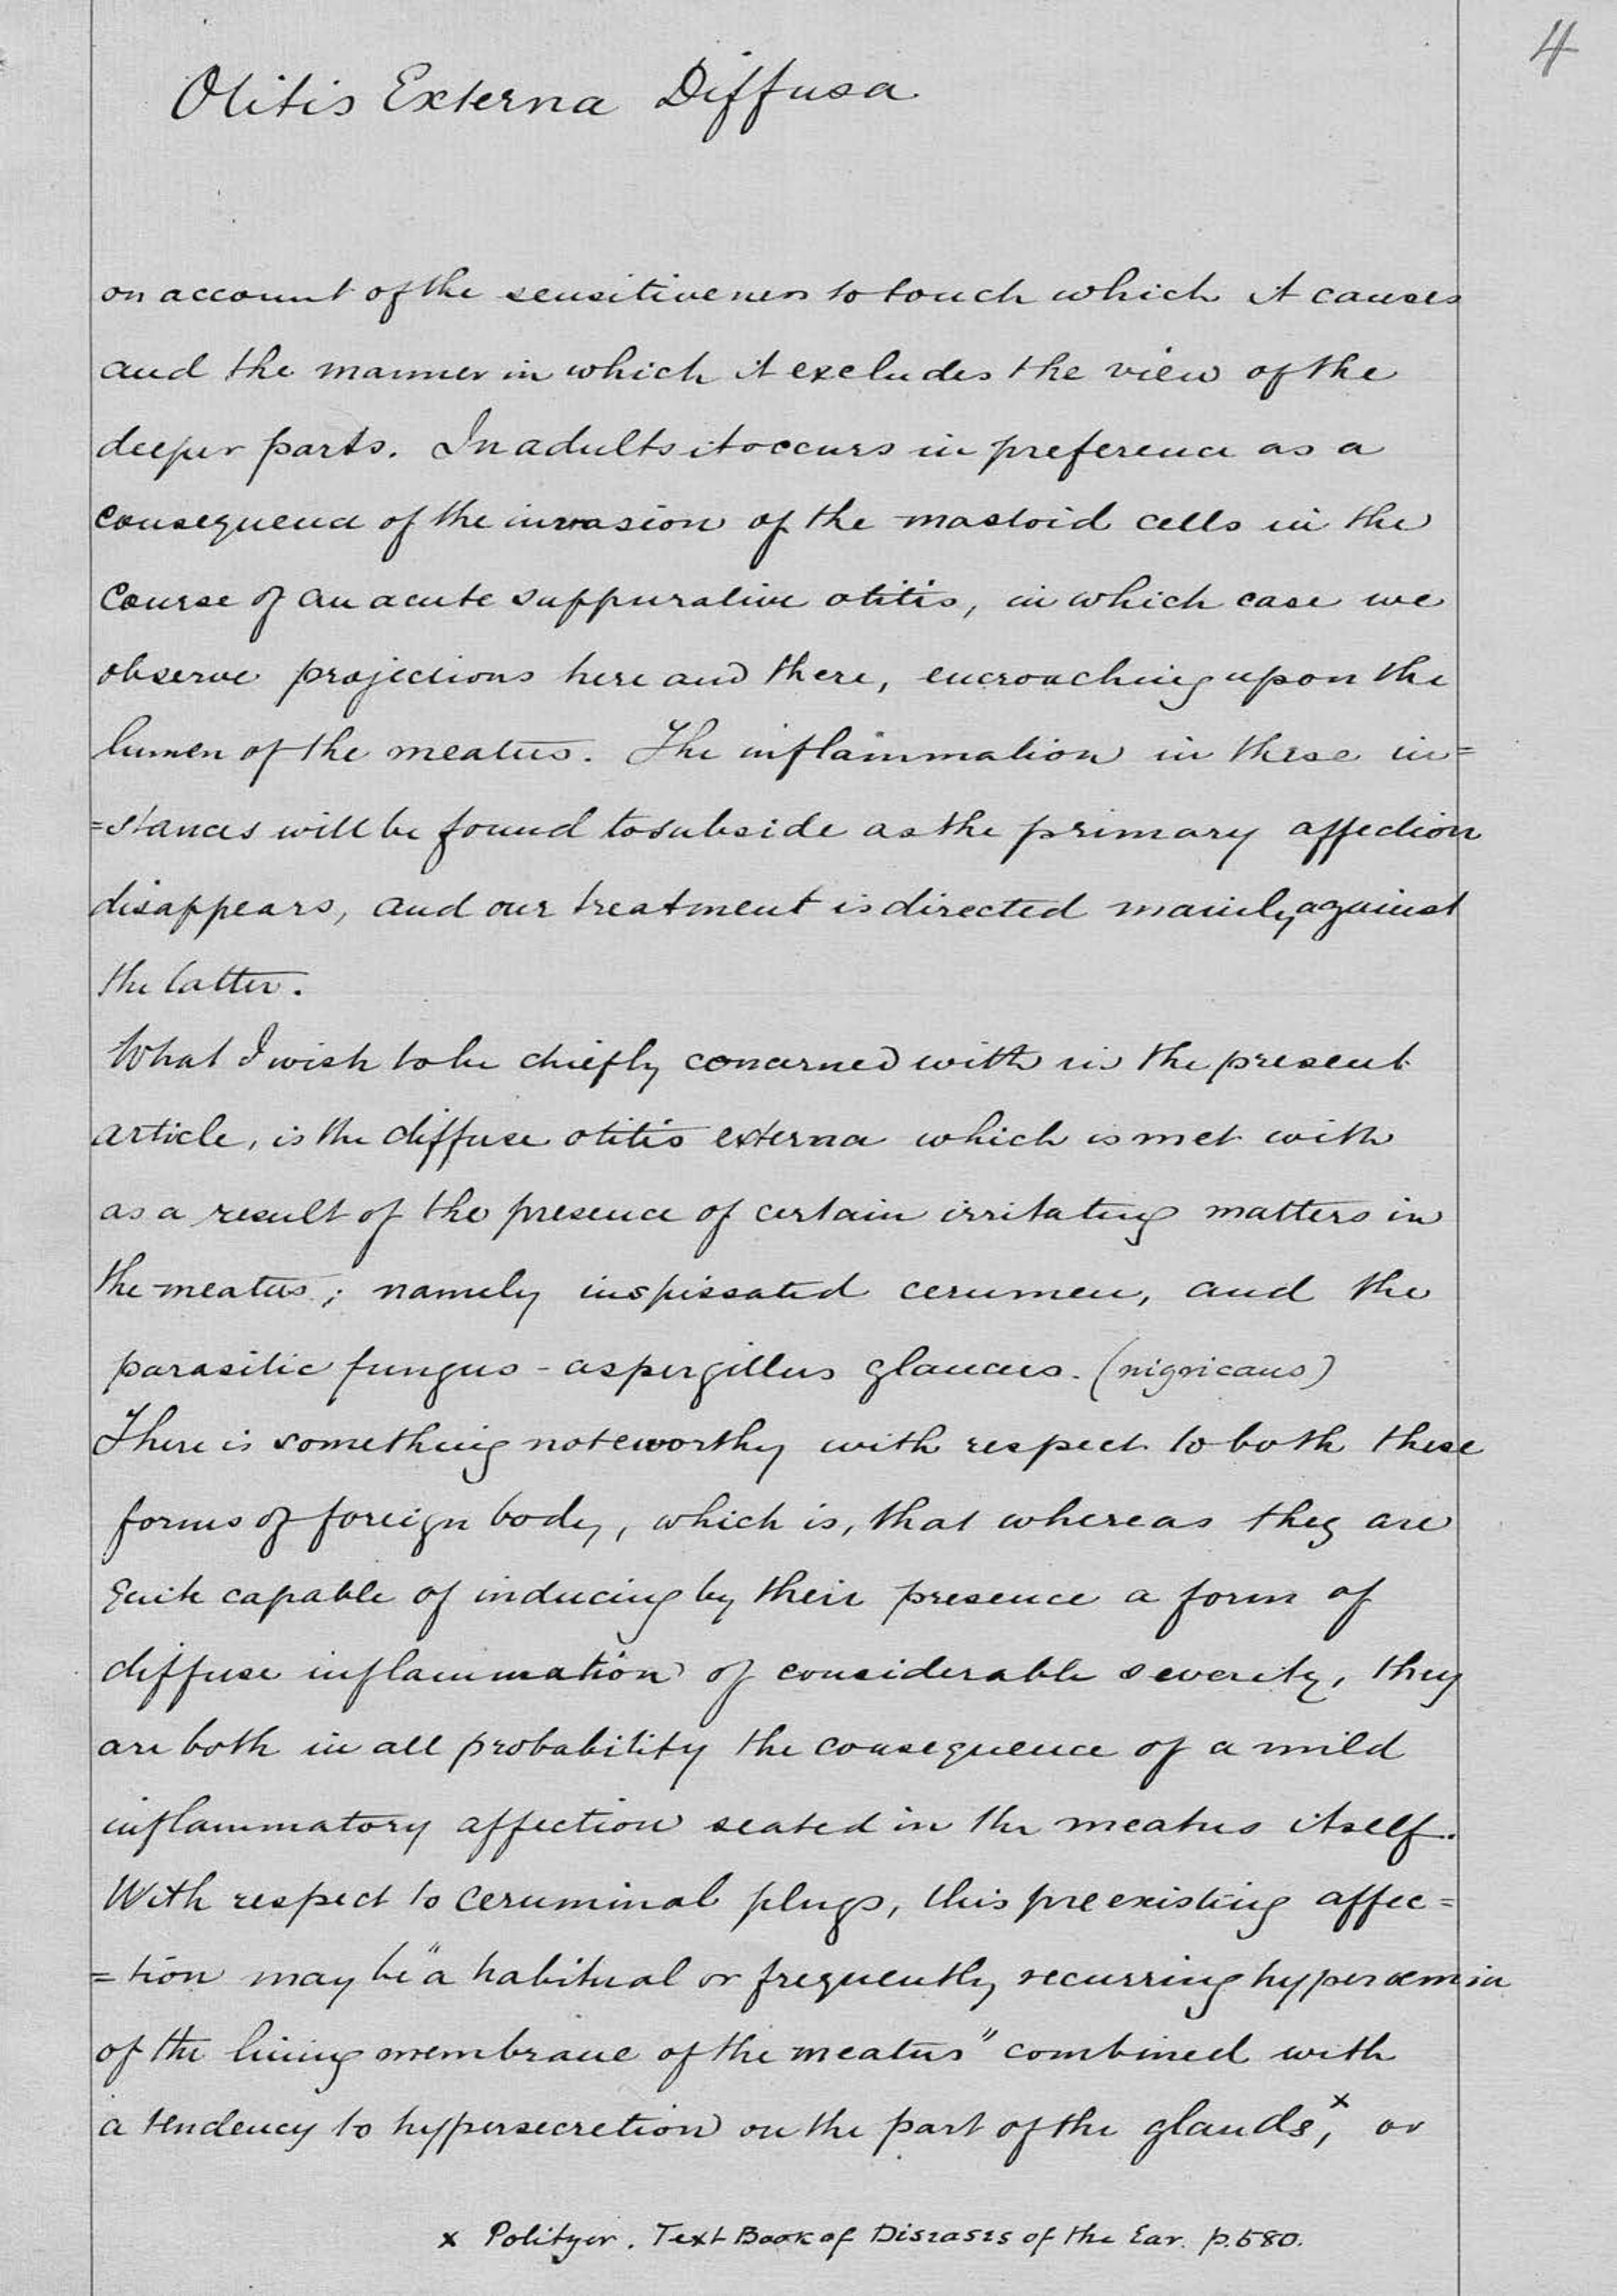 4
Otitis Externa Diffusa
on account of the sensitiveness to touch which it causes
and the manner in which it excludes the view of the
deeper parts. In adults it occurs in preference as a
consequence of the invasion of the mastoid cells in the
course of an acute suppurative otitis, in which case we
observe projections here and there, encroaching upon the
lumen of the meatus. The inflammation in these in=
=stances will be found to subside as the primary affection
disappears, and our treatment is directed mainly against
the latter.
What I wish to be chiefly concerned with in the present
article, is the diffuse otitis externa which is met with
as a result of the presence of certain irritating matters in
the meatus; namely inspissated cerumen, and the
parasitic fungus - aspergillus glaucus. (nigricans)
There is something noteworthy with respect to both these
forms of foreign body, which is, that whereas they are
quite capable of inducing by their presence a form of
diffuse inflammation of considerable severity, they
are both in all probability the consequence of a mild
inflammatory affection seated in the meatus itself.
With respect to ceruminal plugs, this preexisting affec=
=tion may be "a habitual or frequently recurring hyperæmia
of the lining membrane of the meatus" combined with
a tendency to hypersecretion on the part of the glands,x or
x Politzer. Text Book of Diseases of the Ear. p. 580.